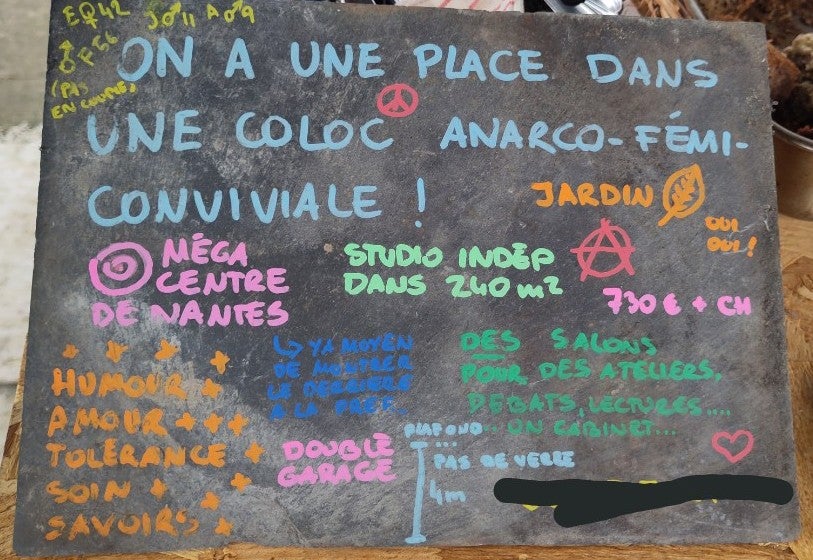 J♂11 A♂9
(PAS
EN COUPLE)
ON A UNE PLACE DANS
UNE COLOC ANARCO-FÉMI-
CONVIVIALE !
JARDIN
OUI
OUI !
MÉGA
CENTRE
DE NANTES
STUDIO INDÉP
DANS 240 m2
730 € + CH
HUMOUR +
AMOUR +++
TOLÉRANCE +
SOIN +
SAVOIRS +
↳ YA MOYEN
DE MONTRER
LE DERRIÈRE
À LA PREF.
DES SALONS
POUR DES ATELIERS,
DÉBATS, LECTURES....
UN CABINET...
DOUBLE
GARAGE
PLAFOND
...
PAS DE VERRE
4m